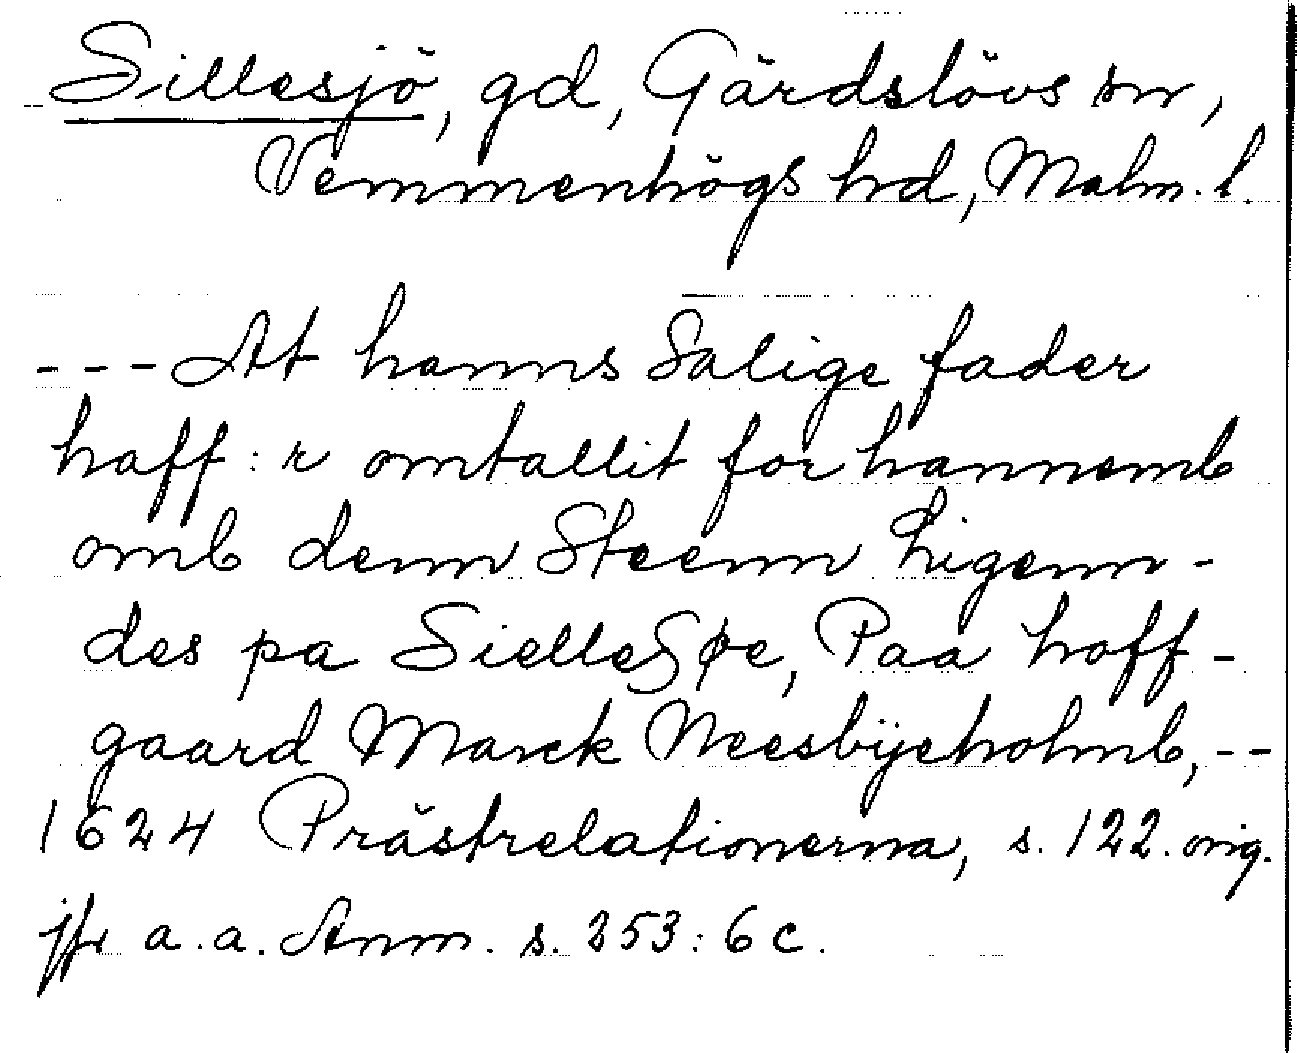 Sillesjö, gd, Gärdslövs sn,
Vemmenhögs hd, Malm. l.
--- At hanns Salige fader
haff:r omtallit for hannemb
omb denn Steenn Ligenn-
des pa SielleSøe, Paa hoff-
gaard Marck Neesbÿeholmb, --
1624 Prästrelationerna, s. 122. orig.
jfr a.a. Anm. s. 253:6c.